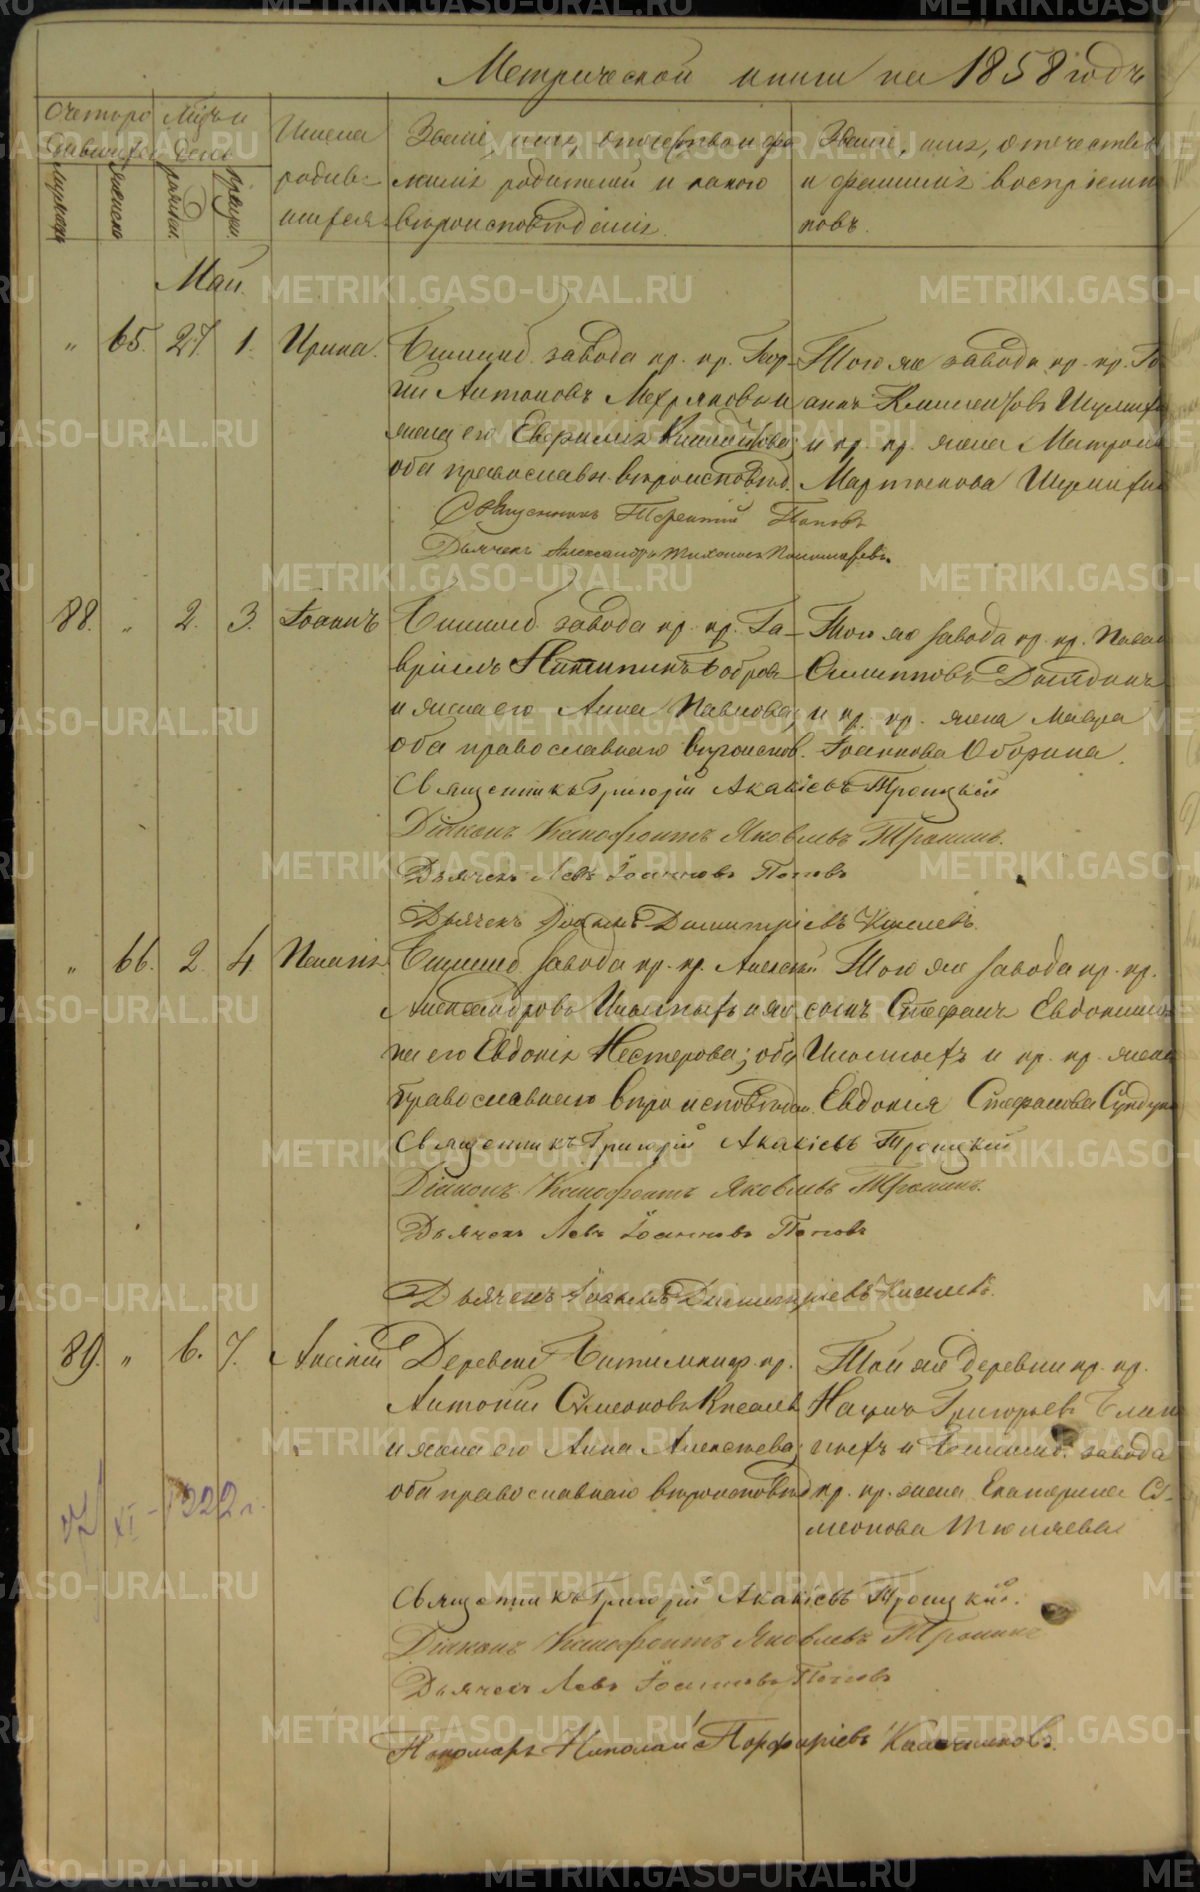 Метрической книги на 1858 годъ
Счетъ ро
дившихся
Мѣсяцъ и
день
Имена
родив-
шихся
Званіе, имя, отчество и фа
милія родителей и какого
вѣроисповѣданія.
Званіе, имя, отчество
и фамилія воспріемни
ковъ.
мужеска
женска
рожден.
крещен.
Май.
" 65. 27. 1. Ирина.
завода кр. кр. Геор-
гій Антоновъ Мехряковъ и
жена его Евфимія
оба православн. вѣроисповѣд.
Того же завода кр. кр. Іо
аннъ Климентовъ
и кр. кр. жена Матрона
Мартынова
Священникъ Терентій Поповъ
Дьячекъ Александръ Тихоновъ Пономаревъ.
88. " 2. 3. Іоаннъ
завода кр. кр. Га-
вріилъ Никитинъ Бобровъ
и жена его Анна Павлова;
оба православнаго вѣроиспов.
Того же завода кр. кр. Павелъ
Филипповъ
и кр. кр. жена Мавра
Іоаннова Оборина.
Священникъ Григорій Акакіевъ Троицкій
Діаконъ Ксенофонтъ Яковлевъ Тронинъ.
Дьячекъ Левъ Іоанновъ Поповъ
Дьячекъ Іоаннъ Димитріевъ Киселевъ.
" 66. 2 4 Пелагія
завода кр. кр. Алексѣй
Александровъ
на его Евдокія Нестерова; оба
православнаго вѣроисповѣдан.
Того же завода кр. кр.
сынъ Стефанъ Евдокимовъ
и кр. кр. жена
Евдокія Стефанова
Священникъ Григорій Акакіевъ Троицкій
Діаконъ Ксенофонтъ Яковлевъ Тронинъ.
Дьячекъ Левъ Іоанновъ Поповъ
Дьячекъ Іоаннъ Димитріевъ Киселевъ.
89. " 6. 7.
Деревни кр.
Антоній Сѵмеоновъ Киселевъ
и жена его Анна Алексѣева;
оба православнаго вѣроисповѣд
Той же деревни кр. кр.
Наумъ Григорьевъ
и завода
кр. кр. жена Екатерина Сѵ-
меонова Тюняева
XI - 1922 г.
Священникъ Григорій Акакіевъ Троицкій.
Діаконъ Ксенофонтъ Яковлевъ Тронинъ
Дьячекъ Левъ Іоанновъ Поповъ
Пономарь Николай Порфиріевъ Калашниковъ.
METRIKI.GASO-URAL.RU